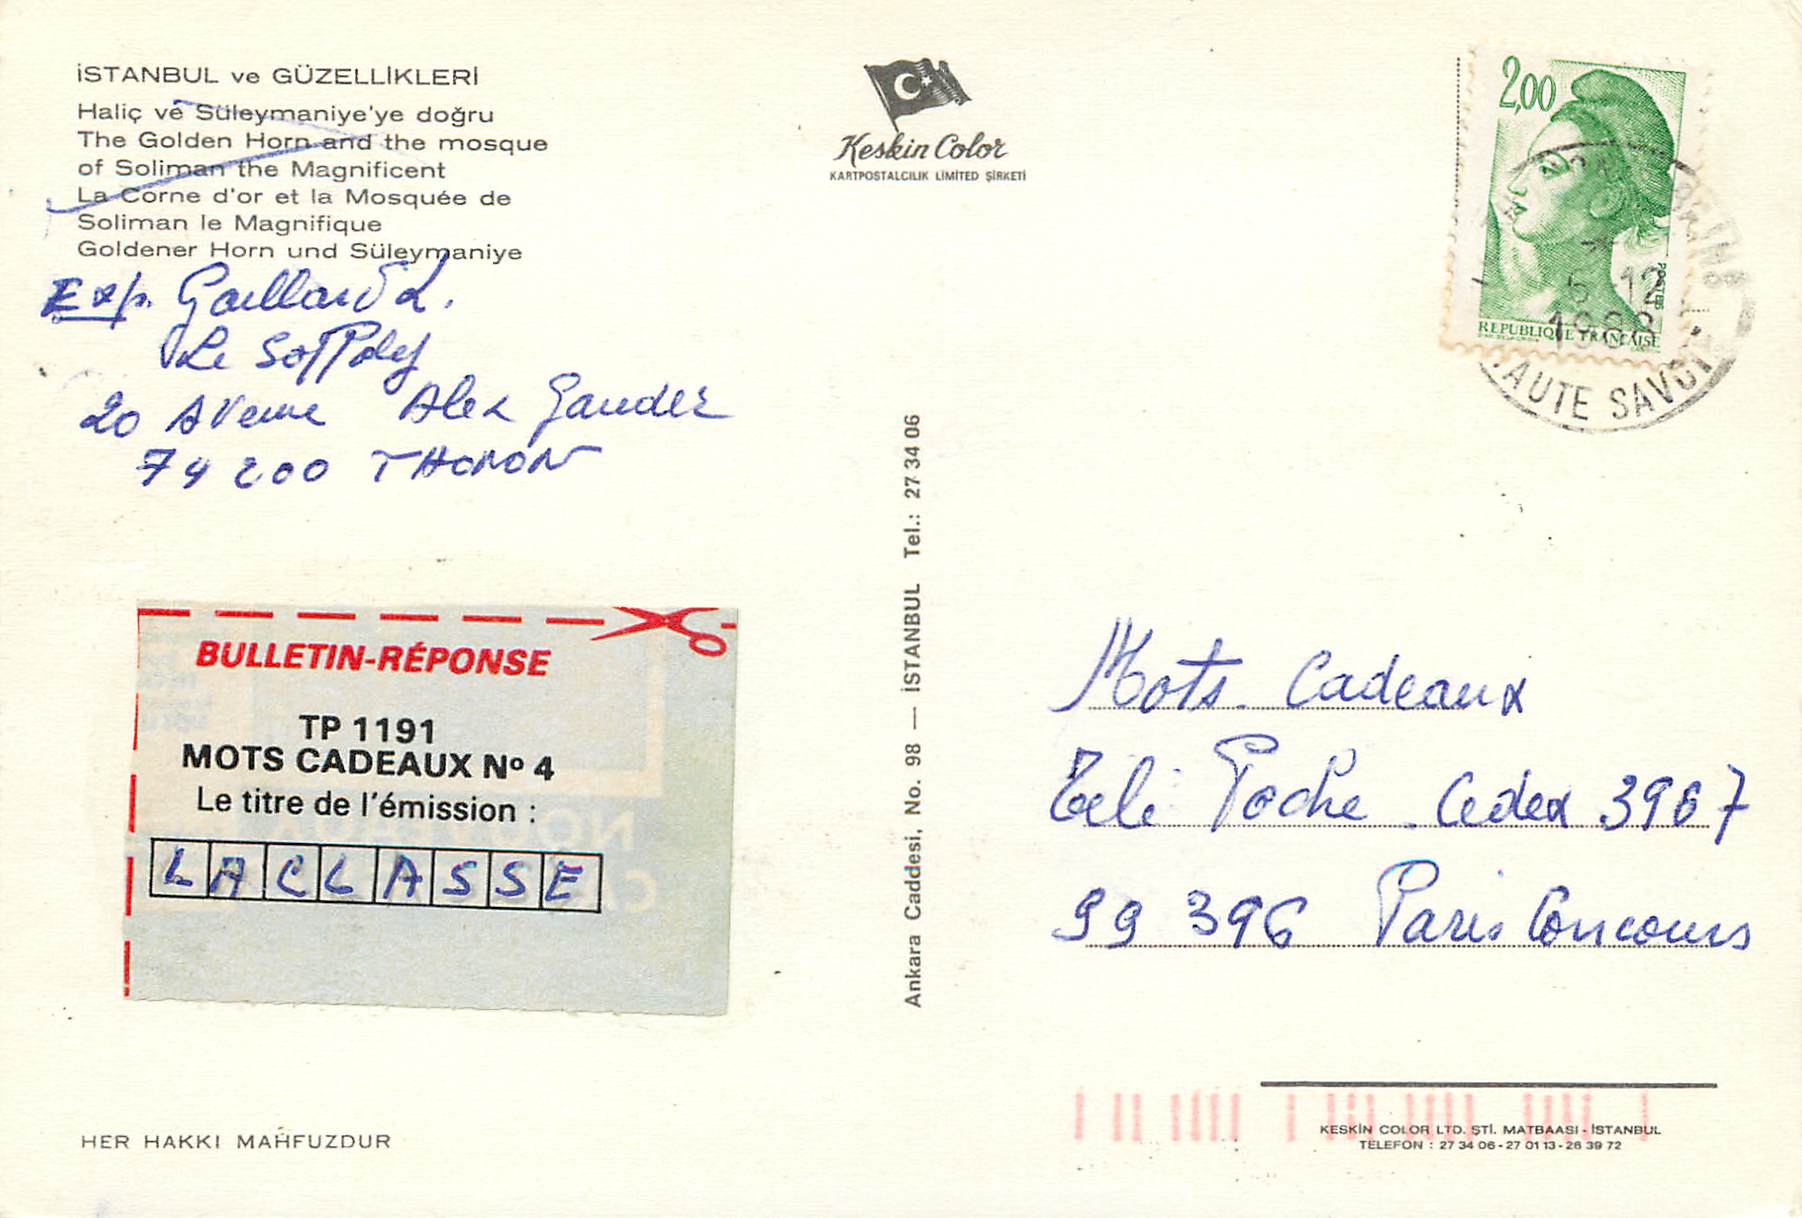 İSTANBUL ve GÜZELLİKLERİ
Haliç ve Süleymaniye'ye doğru
The Golden Horn and the mosque
of Soliman the Magnificent
La Corne d'or et la Mosquée de
Soliman le Magnifique
Goldener Horn und Süleymaniye
Exp. Gaillard L.
Le
20 Avenue Alex
74200 THONON
Keskin Color
KARTPOSTALCILIK LİMİTED ŞİRKETİ
2,00
POSTES
REPUBLIQUE FRANÇAISE
5 12
1988
HAUTE SAVOIE
Ankara Caddesi, No. 98 — İSTANBUL Tel.: 27 34 06
BULLETIN-RÉPONSE
TP 1191
MOTS CADEAUX Nº 4
Le titre de l'émission :
LACLASSE
Mots Cadeaux
Télé Poche . Cedex 3967
99 396 Paris Concours
HER HAKKI MAHFUZDUR
KESKİN COLOR LTD. ŞTİ. MATBAASI - İSTANBUL
TELEFON : 27 34 06 - 27 01 13 - 26 39 72